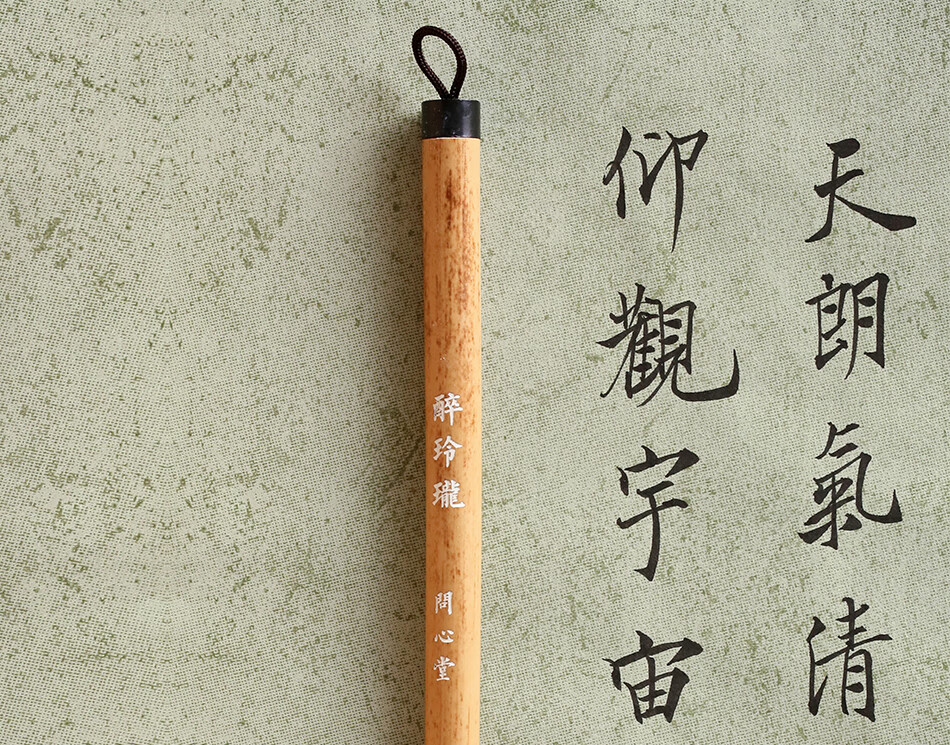 天朗氣清
仰觀宇宙
醉玲瓏
問心堂